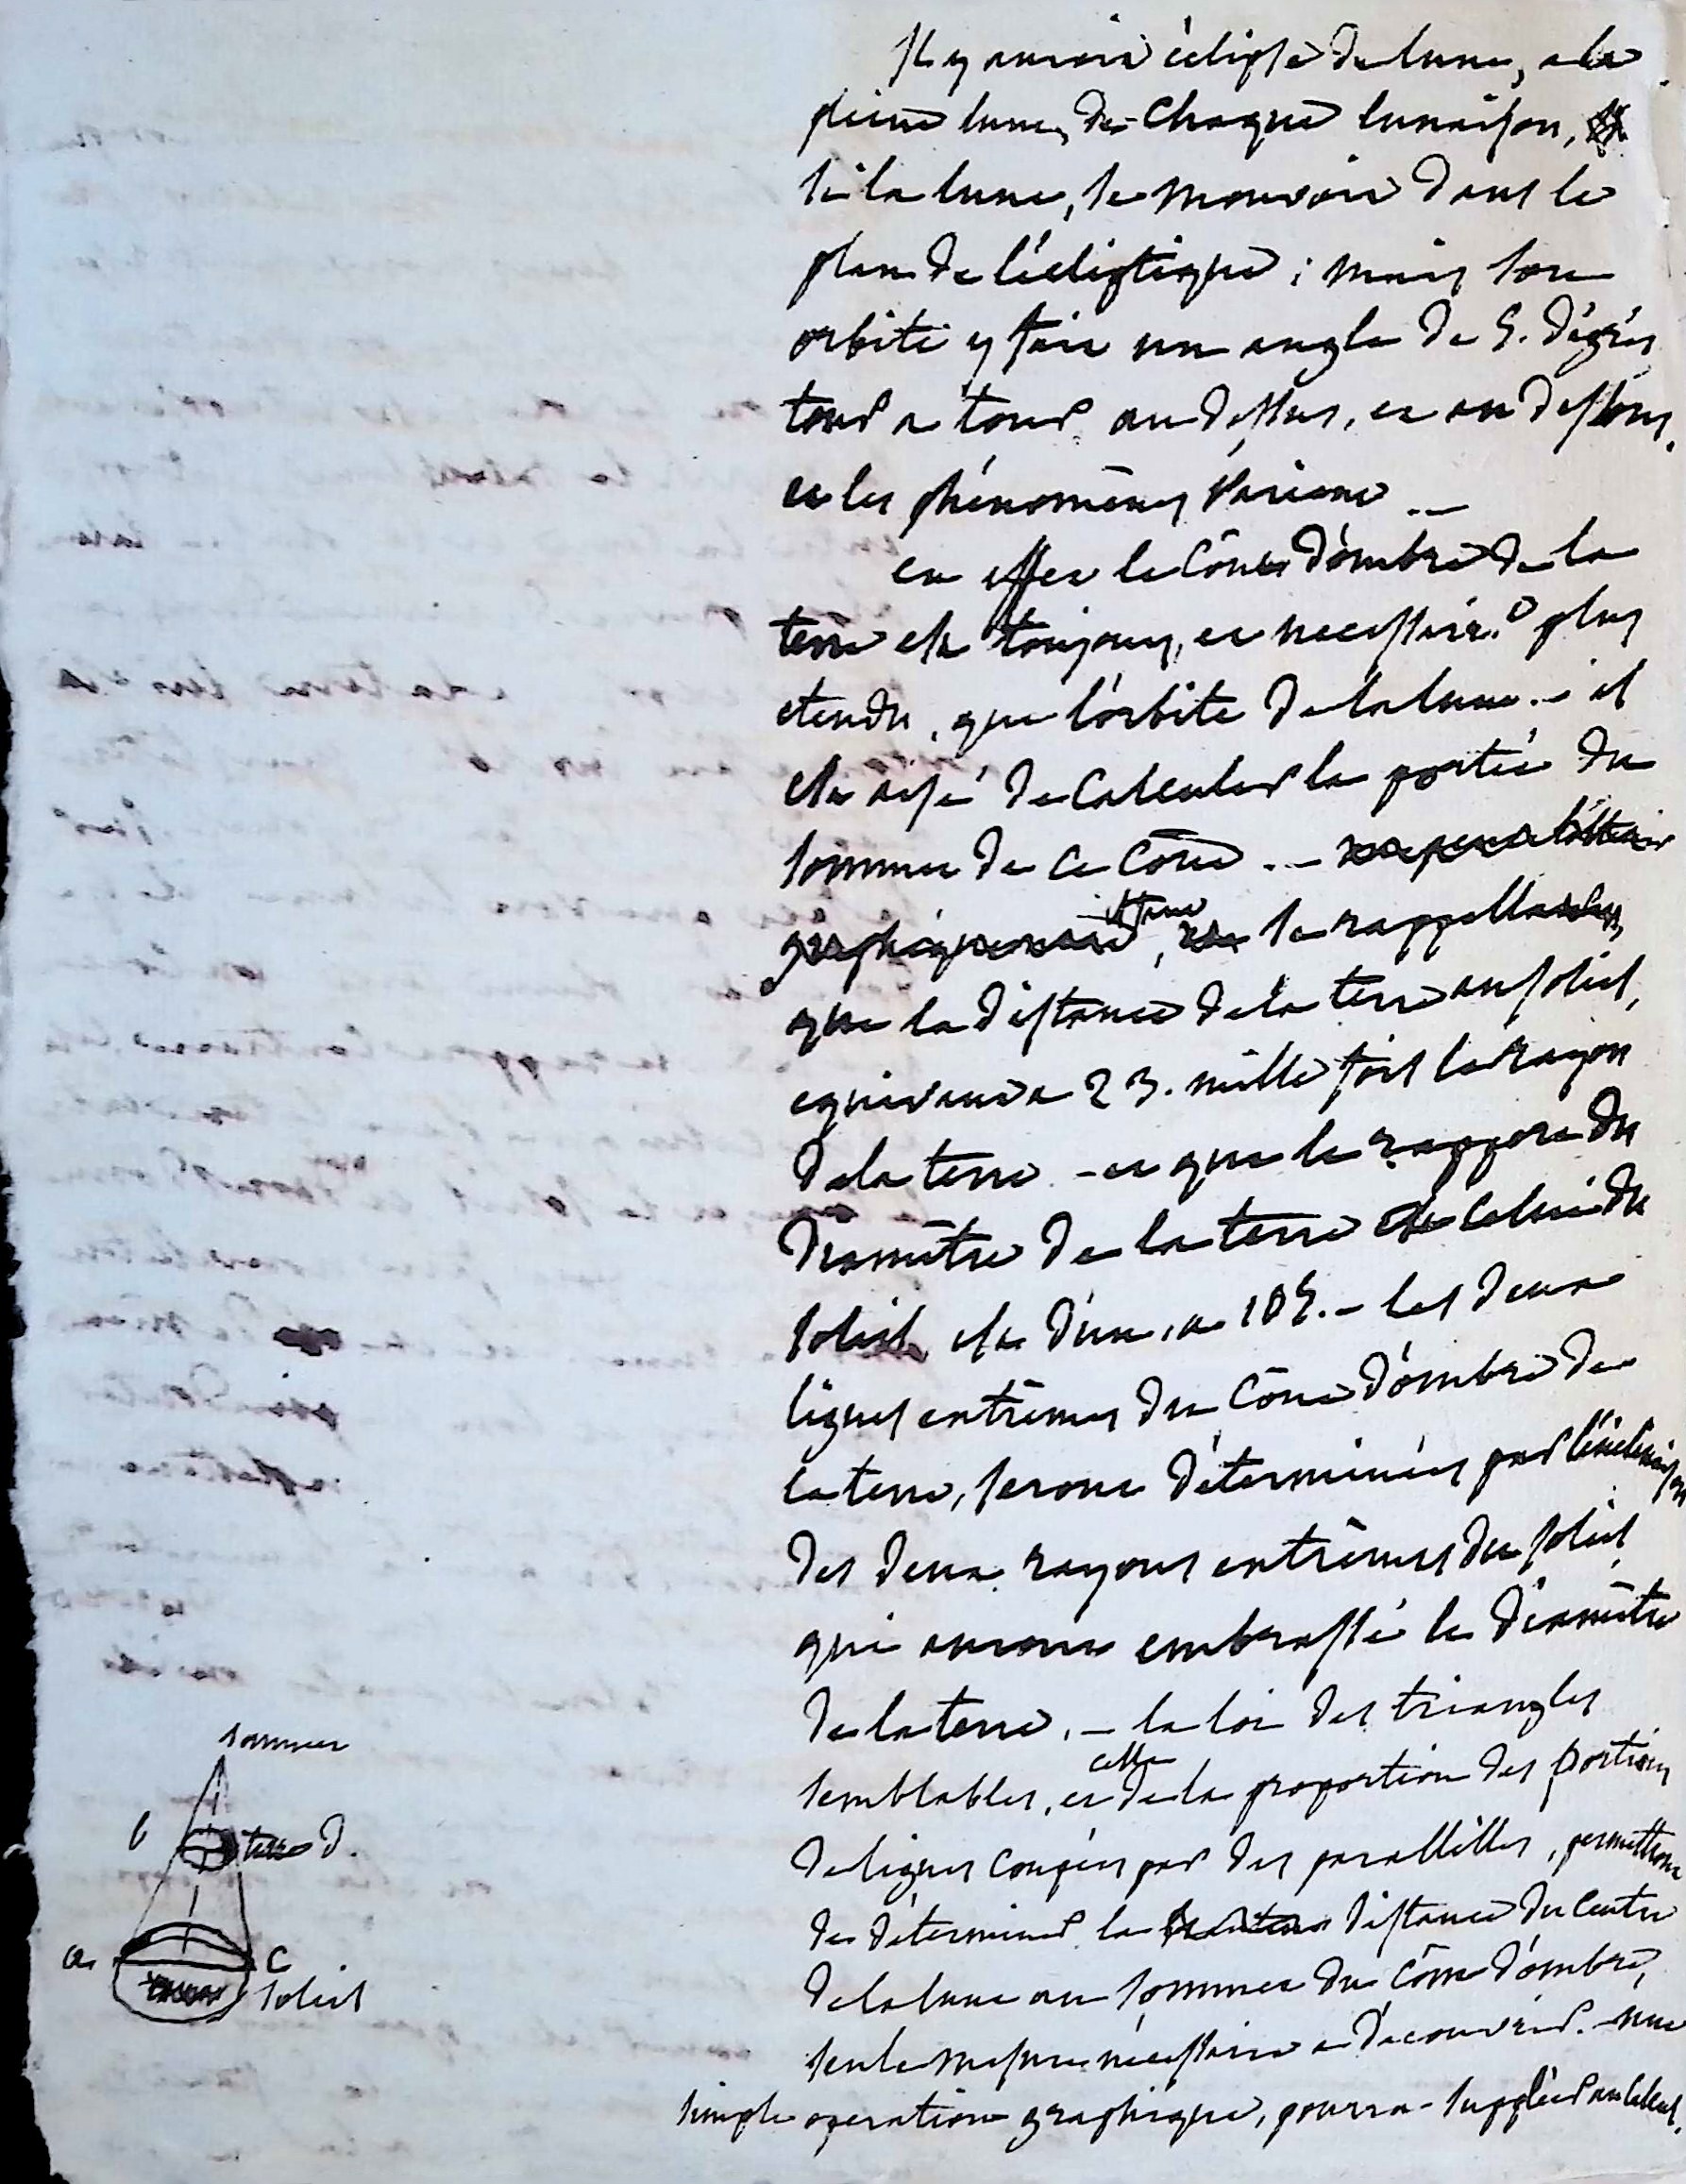 Il y auroit éclipse de lune, a la
pleine lune, de chaque lunaison,
si la lune, se mouvoit dans le
plan de l'écliptique ; mais son
orbite y fait un angle de 5. dégrés
tour a tour au dessus, et au dessous,
et les phénomènes varient __
en effet le cône d'ombre de la
terre est toujours, et necessair.t plus
etendu, que l'orbite de la lune. - il
est aisé de calculer la portée du
sommet de ce cône . -
il faut, se rappeller
que la distance de la terre au soleil,
equivaut a 23. mille fois le rayon
de la terre - et que le rapport du
diamètre de la terre a celui du
soleil est d'un, a 105. - les deux
lignes extrêmes du cône d'ombre de
la terre, seront déterminées par l'inclinaison
des deux rayons extrêmes du soleil,
qui auront embrassé le diamètre
de la terre. - la loi des triangles
semblables, et celle de la proportion des portions
de lignes coupées par des parallèlles, permettront
de déterminer la distance du centre
de la lune au sommet du cône d'ombre,
seule mesure nécessaire a découvrir. - une
simple operation graphique, pourra suppléer au calcul.
sommet
b terre d.
a. c
soleil